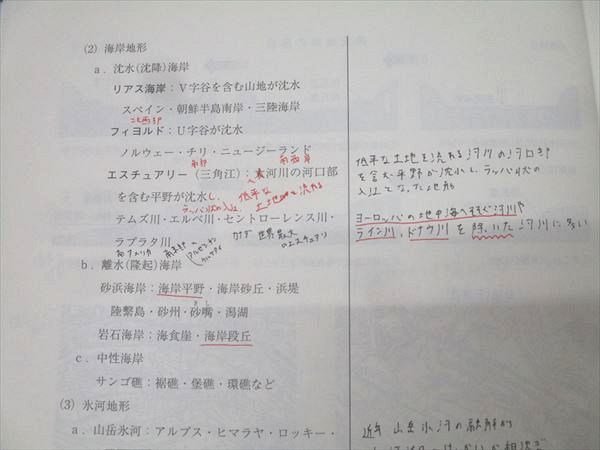 (2) 海岸地形
a. 沈水(沈降)海岸
リアス海岸：V字谷を含む山地が沈水
スペイン・朝鮮半島南岸・三陸海岸
北西部
フィヨルド：U字谷が沈水
ノルウェー・チリ・ニュージーランド
南部 南西岸
エスチュアリー(三角江)：大河川の河口部
を含む平野が沈水し、低平な土地を流れる
ラッパ状の入江
テムズ川・エルベ川・セントローレンス川・
ラプラタ川
南アメリカ
カナダ 世界最大のエスチュアリ
b. 離水(隆起)海岸
砂浜海岸：海岸平野・海岸砂丘・浜堤
陸繋島・砂州・砂嘴・潟湖
さし
岩石海岸：海食崖・海岸段丘
c. 中性海岸
サンゴ礁：裾礁・堡礁・環礁など
(3) 氷河地形
a. 山岳氷河：アルプス・ヒマラヤ・ロッキー・
低平な土地を流れる河川の河口部
を含む平野が沈水し、ラッパ状の
入江となった地形
ヨーロッパの地中海へそそぐ河川や
ライン川、ドナウ川を除いた河川に多い
近年 山岳氷河の融解が